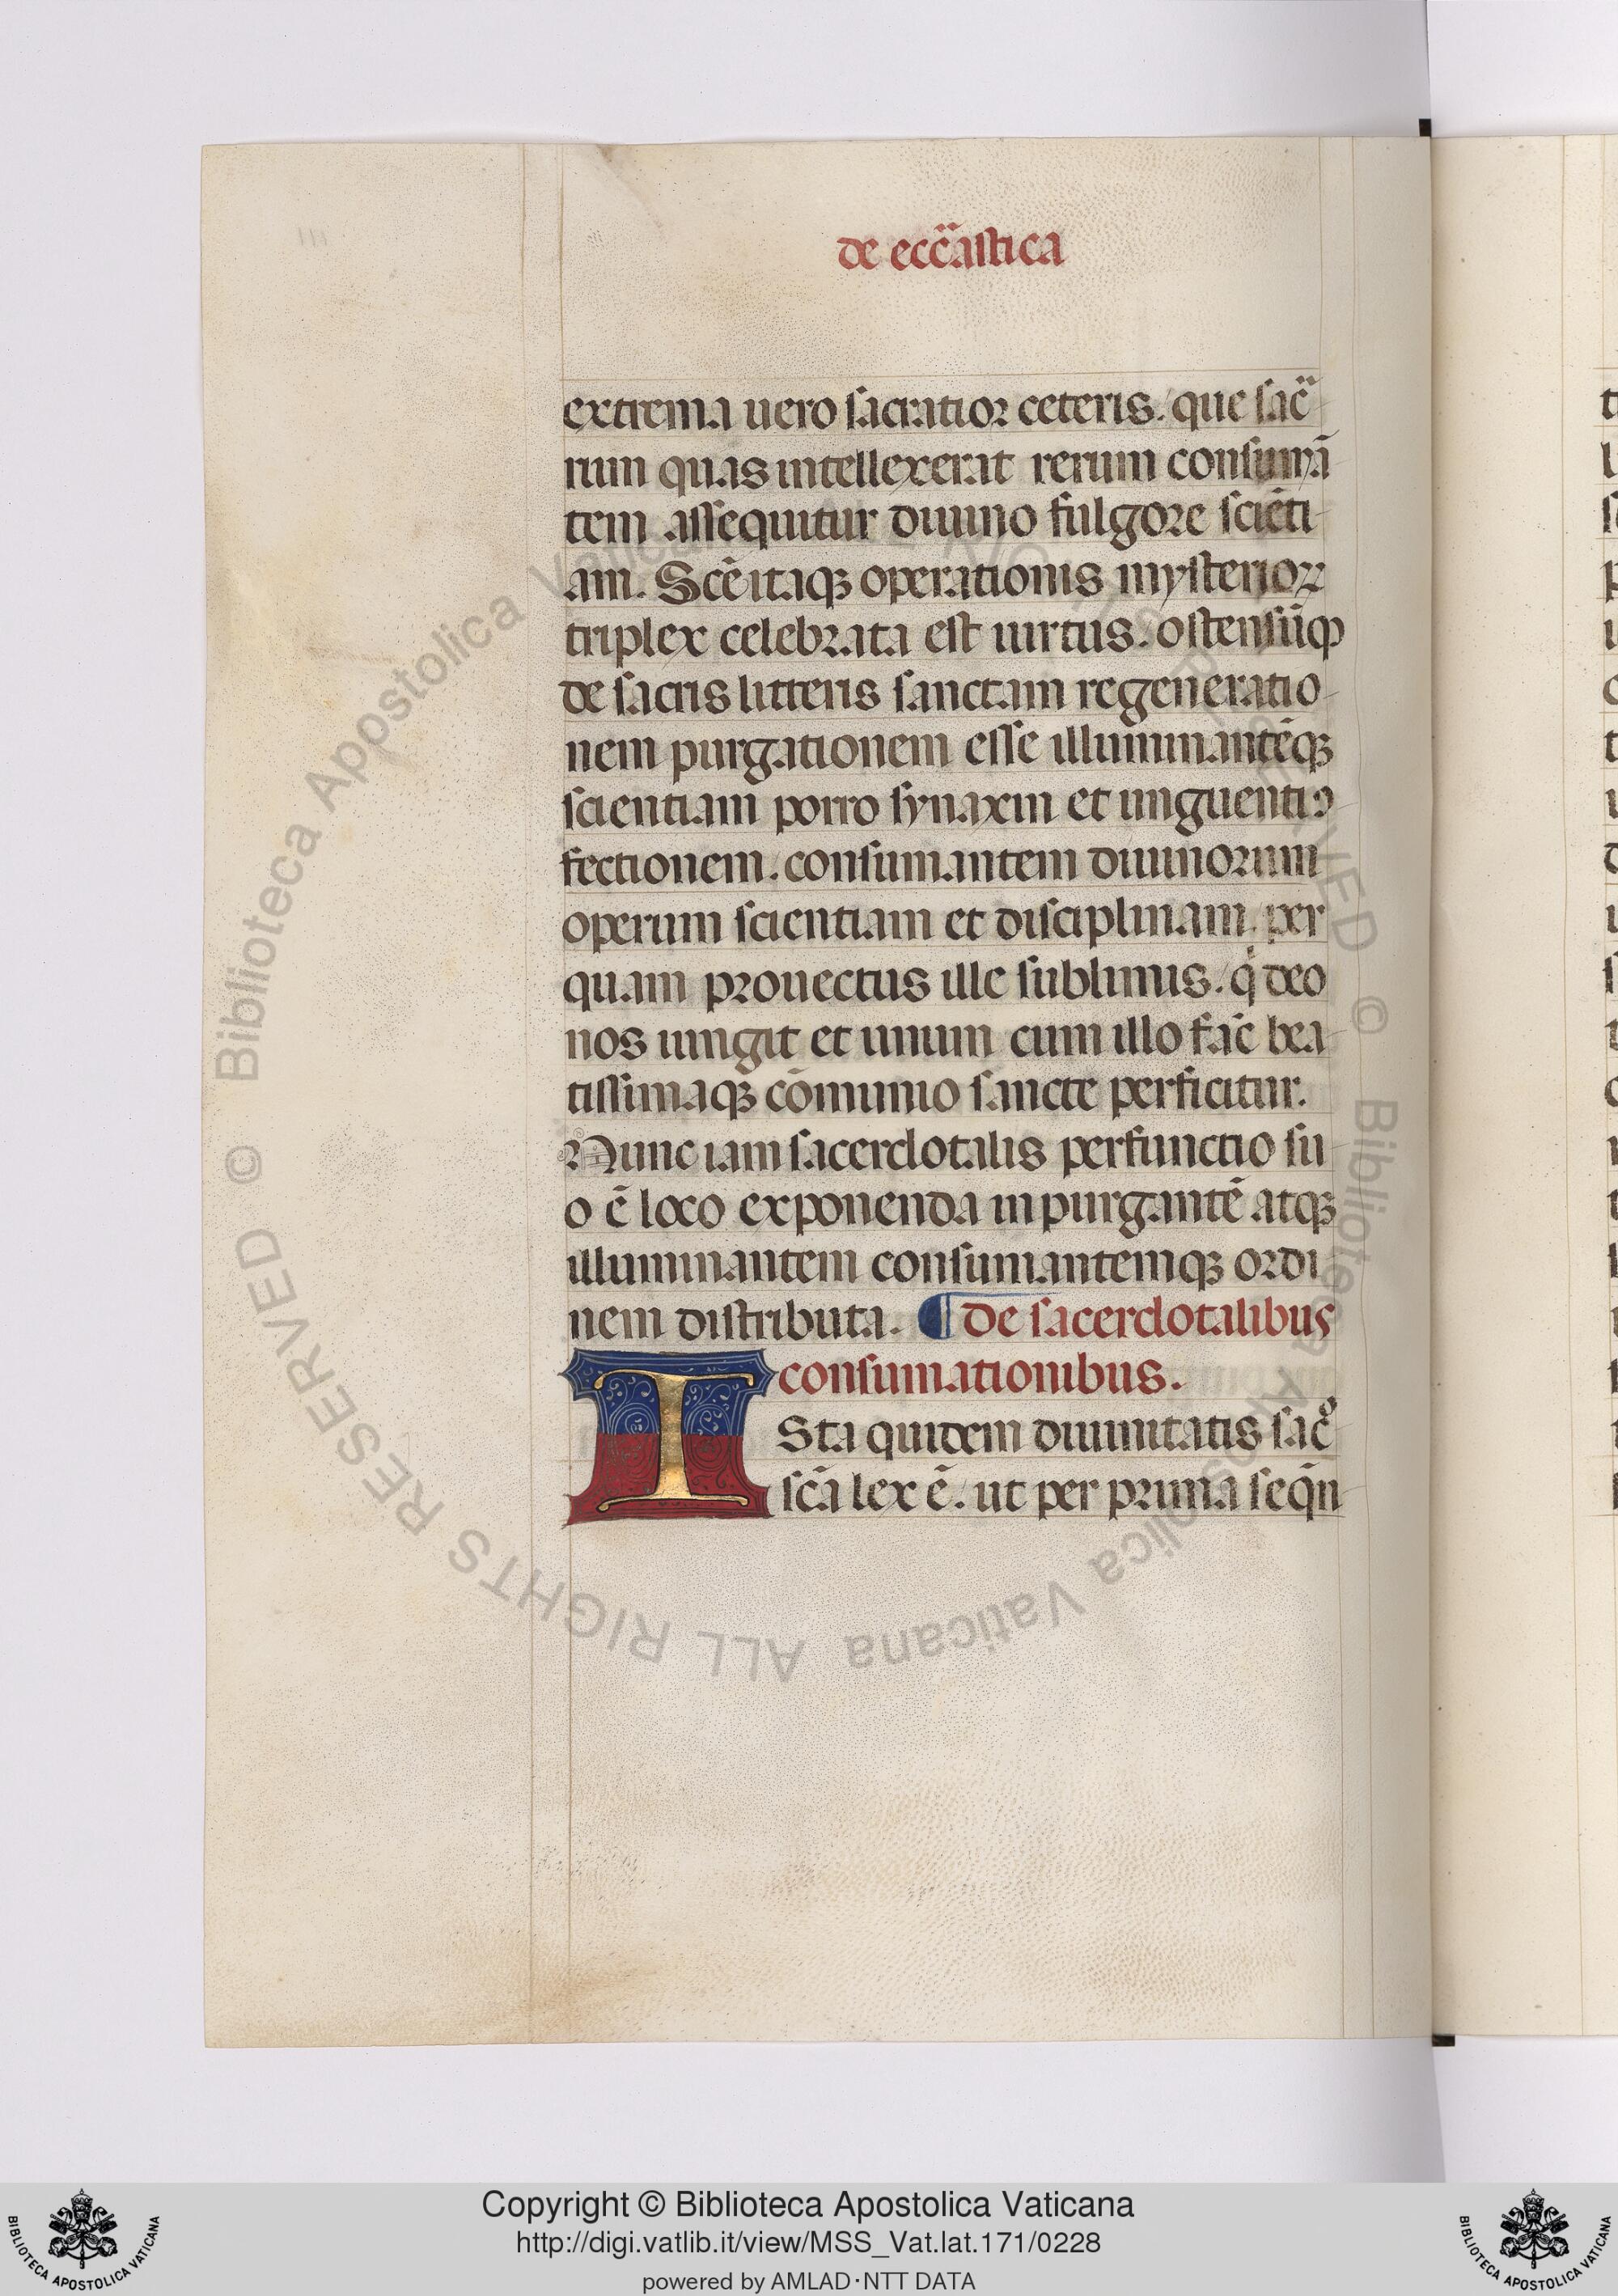 de ecc̄astica
extrema uero sacratior ceteris. que sac̄
rum quas intellexerat rerum consumā
tem assequitur diuino fulgore sciēti
am. Scē itaqꝫ operationis mysterioꝝ
triplex celebrata est uirtus. ostensūqꝫ
de sacris litteris sanctam regeneratio
nem purgationem esse illuminantēqꝫ
scientiam porro synaxin et unguenti ꝯ
fectionem. consumantem diuinorum
operum scientiam et disciplinam. per
quam prouectus ille sublimis. q̇ deo
nos iungit et unum cum illo fac̄ bea
tissimaqꝫ cōmunio sancte perficitur.
Nunc iam sacerdotalis perfunctio su
o ē loco exponenda in purgantē atqꝫ
illuminantem consumantemqꝫ ordi
nem distributa. ¶ De sacerdotalibus
consumationibus.
ISta quidem diuinitatis sac̄
scā lex ē. ut per prima seqn̄
Copyright © Biblioteca Apostolica Vaticana
http://digi.vatlib.it/view/MSS_Vat.lat.171/0228
powered by AMLAD·NTT DATA
BIBLIOTECA APOSTOLICA VATICANA
BIBLIOTECA APOSTOLICA VATICANA
© Biblioteca Apostolica Vaticana ALL RIGHTS RESERVED © Biblioteca Apostolica Vaticana ALL RIGHTS RESERVED